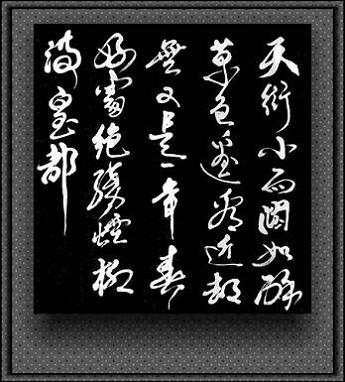 天街小雨潤如酥
草色遙看近却
無最是一年春
好處絕勝煙柳
滿皇都